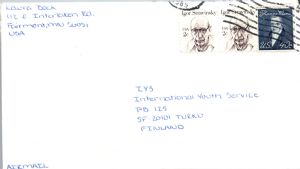 Laura Beck
112 E Interlaken Rd.
Fairmont, MN 56031
USA
Igor Stravinsky
Igor Stravinsky
USA
2c
IYS
International Youth Service
PB 125
SF 20101 TURKU
FINLAND
AIRMAIL